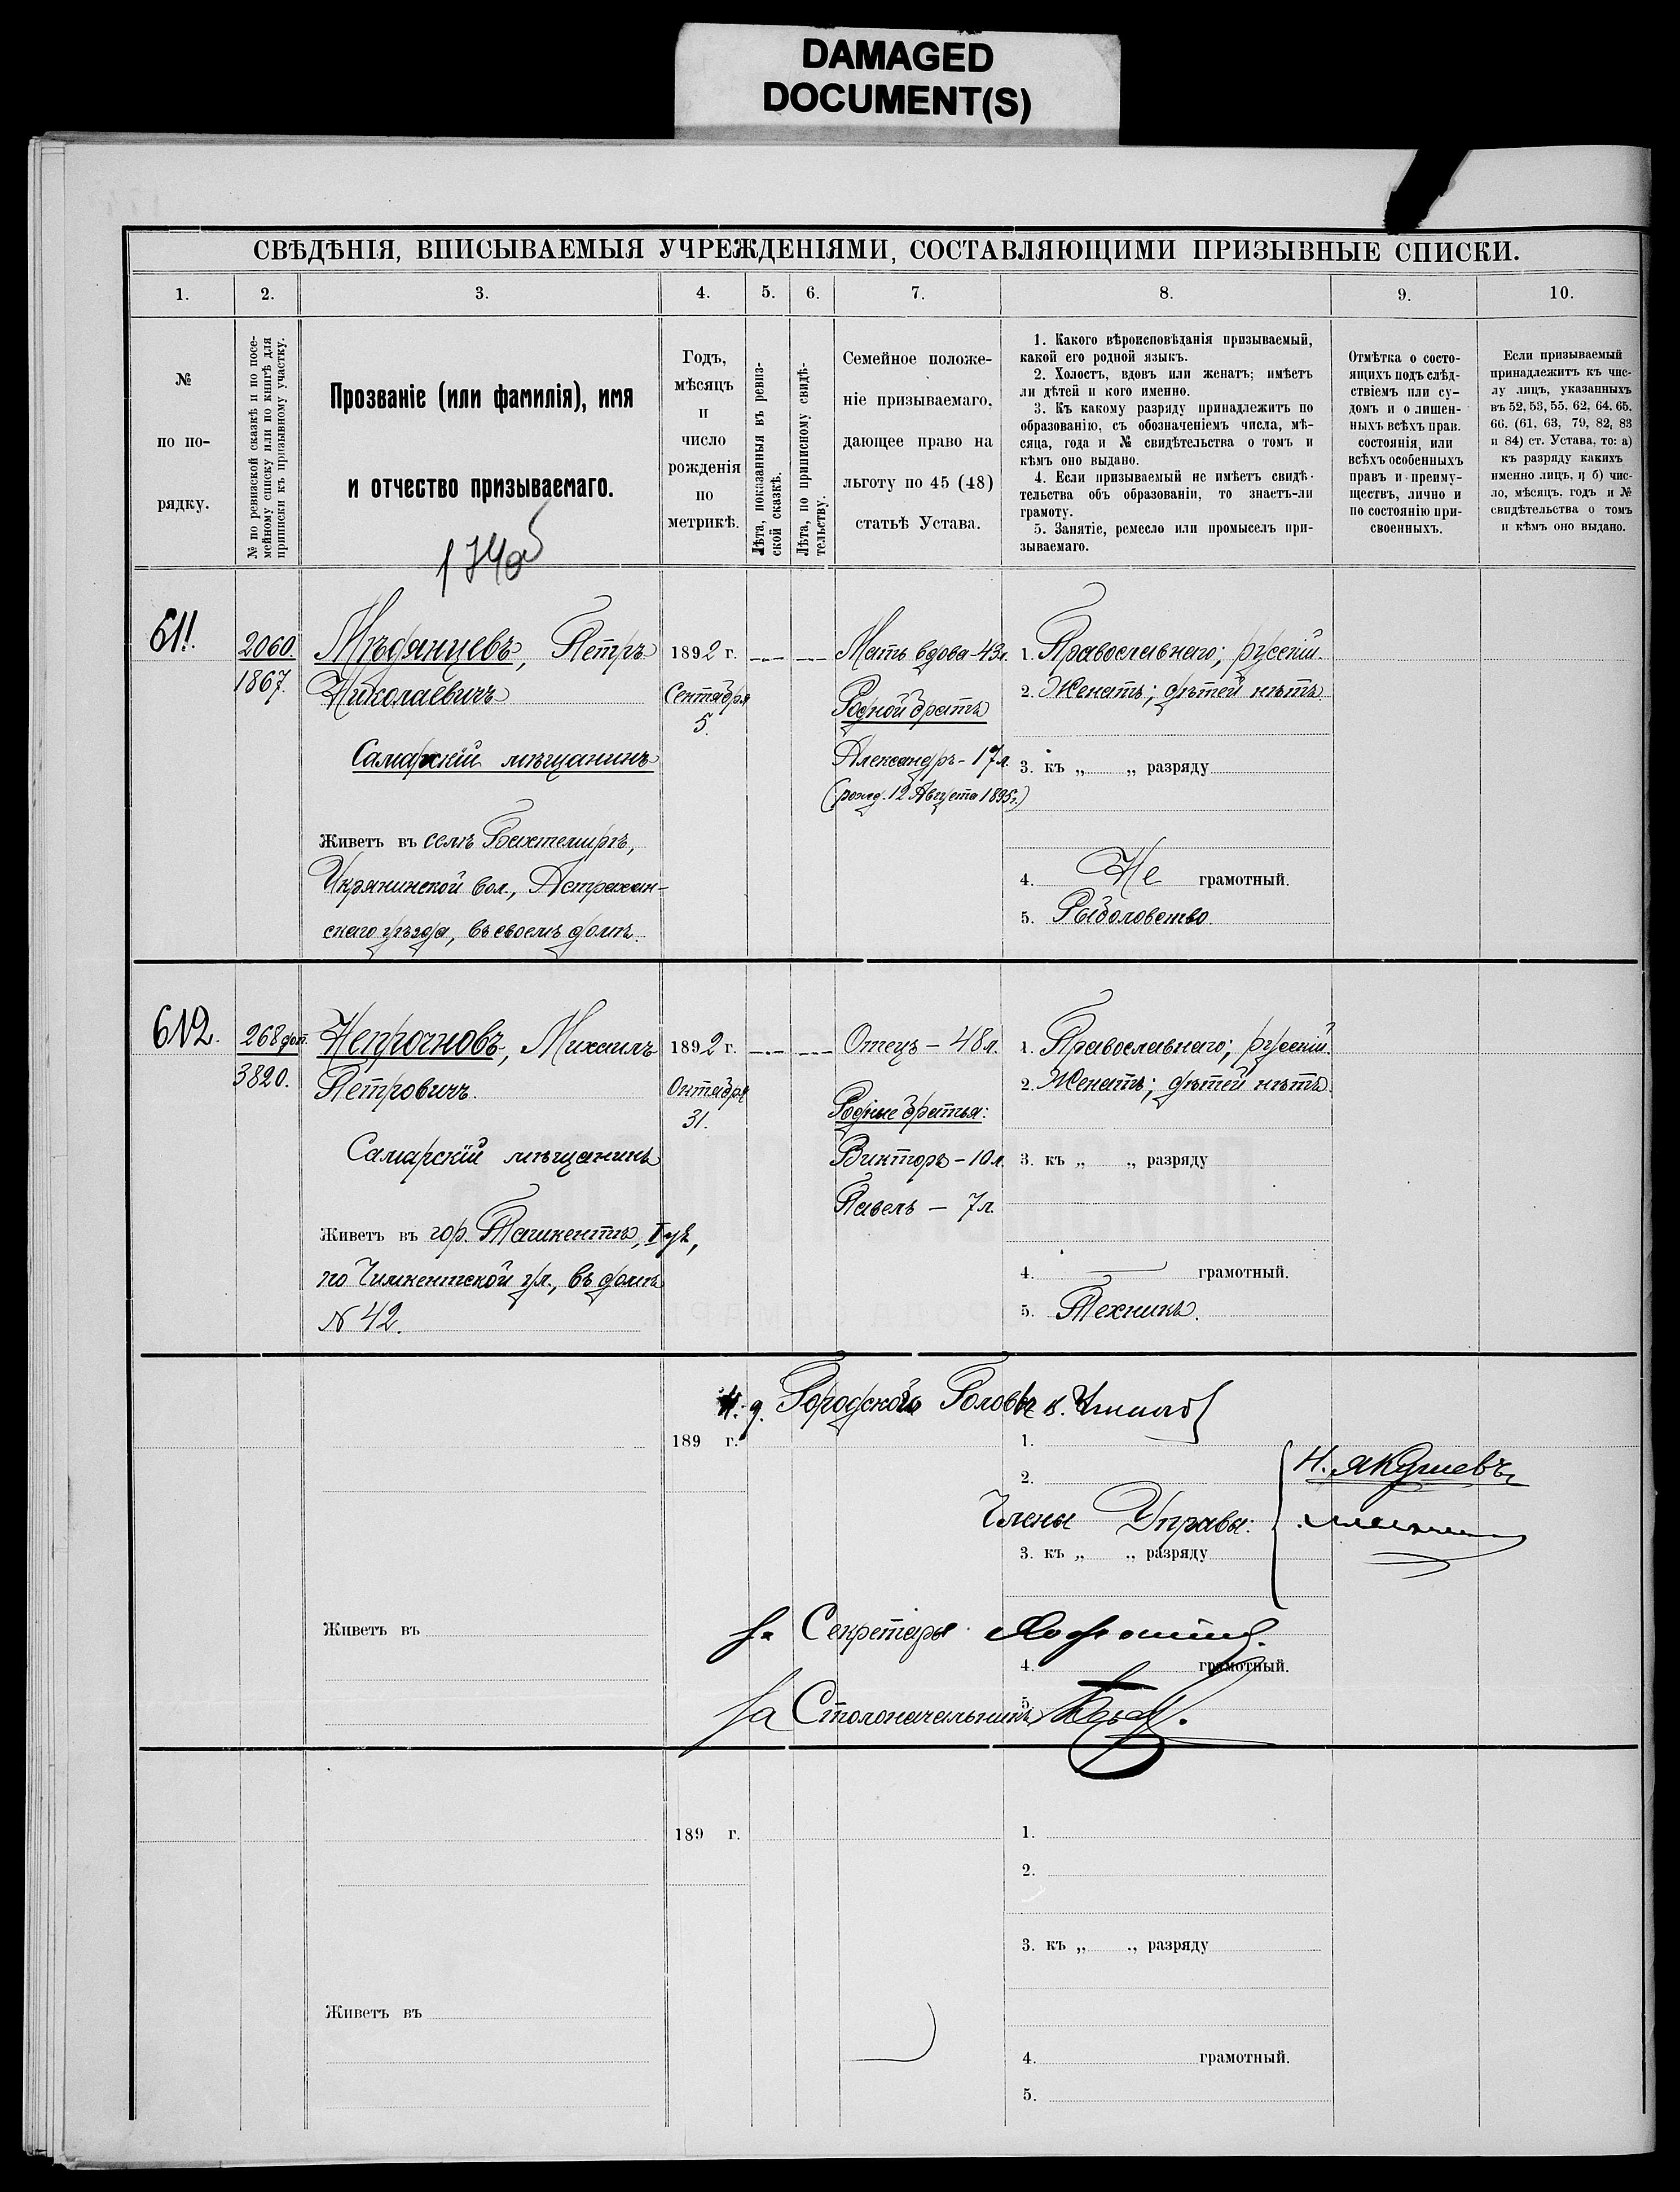 DAMAGED
DOCUMENT(S)
СВѢДѢНІЯ, ВПИСЫВАЕМЫЯ УЧРЕЖДЕНІЯМИ, СОСТАВЛЯЮЩИМИ ПРИЗЫВНЫЕ СПИСКИ.
1.
2.
3.
4.
5.
6.
7.
8.
9.
10.
№
по по-
рядку.
№ по ревизской сказкѣ и по посе-
мейному списку или по книгѣ для
приписки къ призывному участку.
Прозваніе (или фамилія), имя
и отчество призываемаго.
Годъ,
мѣсяцъ
и
число
рожденія
по
метрикѣ.
Лѣта, показанныя въ ревиз-
ской сказкѣ.
Лѣта, по приписному свидѣ-
тельству.
Семейное положе-
ніе призываемаго,
дающее право на
льготу по 45 (48)
статьѣ Устава.
1. Какого вѣроисповѣданія призываемый,
какой его родной языкъ.
2. Холостъ, вдовъ или женатъ; имѣетъ
ли дѣтей и кого именно.
3. Къ какому разряду принадлежитъ по
образованію, съ обозначеніемъ числа, мѣ-
сяца, года и № свидѣтельства о томъ и
кѣмъ оно выдано.
4. Если призываемый не имѣетъ свидѣ-
тельства объ образованіи, то знаетъ-ли
грамоту.
5. Занятіе, ремесло или промыселъ при-
зываемаго.
Отмѣтка о состо-
ящихъ подъ слѣд-
ствіемъ или су-
домъ и о лишен-
ныхъ всѣхъ прав.
состоянія, или
всѣхъ особенныхъ
правъ и преиму-
ществъ, лично и
по состоянію при-
своенныхъ.
Если призываемый
принадлежитъ къ чис-
лу лицъ, указанныхъ
въ 52, 53, 55, 62, 64, 65,
66, (61, 63, 79, 82, 83
и 84) ст. Устава, то: а)
къ разряду какихъ
именно лицъ, и б) чис-
ло, мѣсяцъ, годъ и №
свидѣтельства о томъ
и кѣмъ оно выдано.
174об
611.
2060.
1867.
Мѣдянцевъ, Петръ
Николаевичъ
Самарскій мѣщанинъ
Живетъ въ селѣ Бахтемирѣ,
Икрянинской вол., Астрахан-
скаго уѣзда, въ своемъ домѣ.
1892 г.
Сентября
5.
Мать вдова - 43 л.
Родной братъ
Александръ - 17 л.
(рожд. 12 Августа 1895 г.)
1. Православнаго; русскій.
2. Женатъ; дѣтей нѣтъ.
3. къ „ „ разряду
4. Не грамотный.
5. Рыболовство.
612.
268 доп.
3820.
Непрочновъ, Михаилъ
Петровичъ.
Самарскій мѣщанинъ
Живетъ въ гор. Ташкентѣ, I уч.,
по Чимкентской ул., въ домѣ
№ 42.
1892 г.
Октября
31.
Отецъ - 48 л.
Родные братья:
Викторъ - 10 л.
Павелъ - 7 л.
1. Православнаго; русскій.
2. Женатъ; дѣтей нѣтъ.
3. къ „ „ разряду
4. грамотный.
5. Техникъ.
И. д. Городского Головы
189 г.
1.
2.
Н. Якушевъ
Члены Управы:
3. къ „ „ разряду
Живетъ въ
За Секретаря
4. грамотный.
5.
За Столоначальника
189 г.
1.
2.
3. къ „ „ разряду
Живетъ въ
4. грамотный.
5.